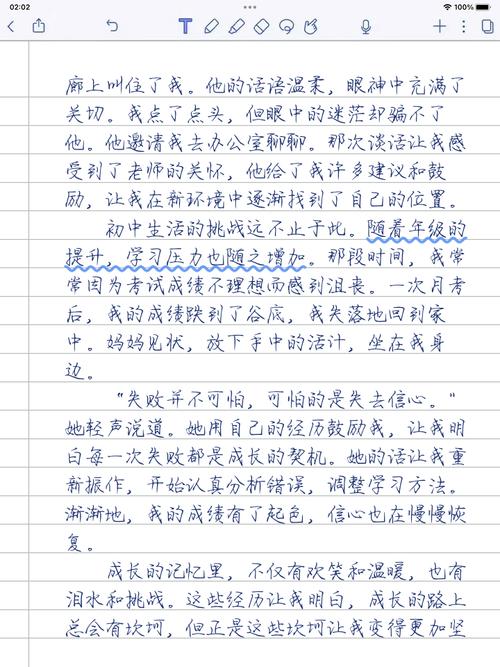 02:02
100%
T
廊上叫住了我。他的话语温柔，眼神中充满了
关切。我点了点头，但眼中的迷茫却骗不了
他。他邀请我去办公室聊聊。那次谈话让我感
受到了老师的关怀，他给了我许多建议和鼓
励，让我在新环境中逐渐找到了自己的位置。
初中生活的挑战远不止于此。随着年级的
提升，学习压力也随之增加。那段时间，我常
常因为考试成绩不理想而感到沮丧。一次月考
后，我的成绩跌到了谷底，我失落地回到家
中。妈妈见状，放下手中的活计，坐在我身
边。
“失败并不可怕，可怕的是失去信心。”
她轻声说道。她用自己的经历鼓励我，让我明
白每一次失败都是成长的契机。她的话让我重
新振作，开始认真分析错误，调整学习方法。
渐渐地，我的成绩有了起色，信心也在慢慢恢
复。
成长的记忆里，不仅有欢笑和温暖，也有
泪水和挑战。这些经历让我明白，成长的路上
总会有坎坷，但正是这些坎坷让我变得更加坚